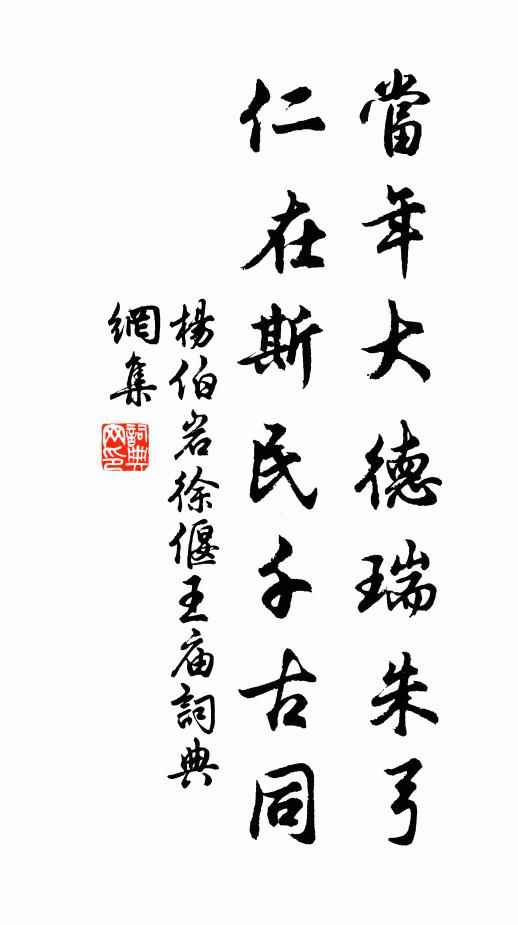 當年大德瑞朱弓
仁在斯民千古同
楊伯岩徐偃王庙詞典
網集
詞典
网印